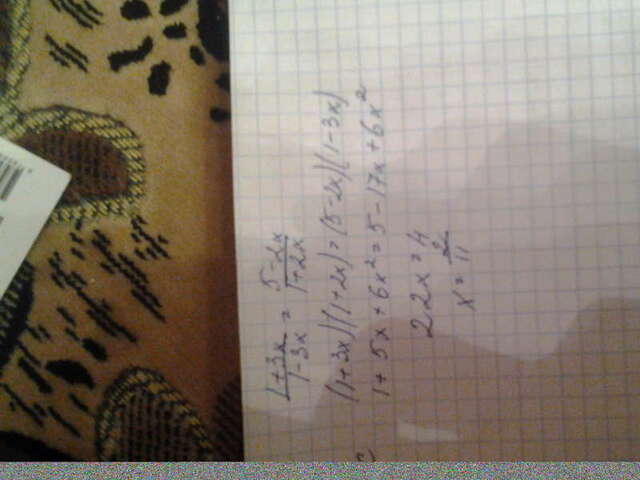 1+3x/1-3x = 5-2x/1+2x
(1+3x)(1+2x)=(5-2x)(1-3x)
1+5x+6x²=5-17x+6x²
22x=4
x=2/11